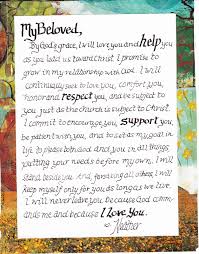 My Beloved,
By God's grace, I will love you and help you
as you lead us toward Christ. I promise to
grow in my relationship with God. I will
continually seek to love you, comfort you,
honor and respect you, and be subject to
you just as the church is subject to Christ.
I commit to encourage you, support you,
be patient with you, and to set as my goal in
life to please both God and you in all things,
putting your needs before my own. I will
stand beside you. And forsaking all others, I will
keep myself only for you as long as we live.
I will never leave you because God comm-
ands me and because I love you.
Heather